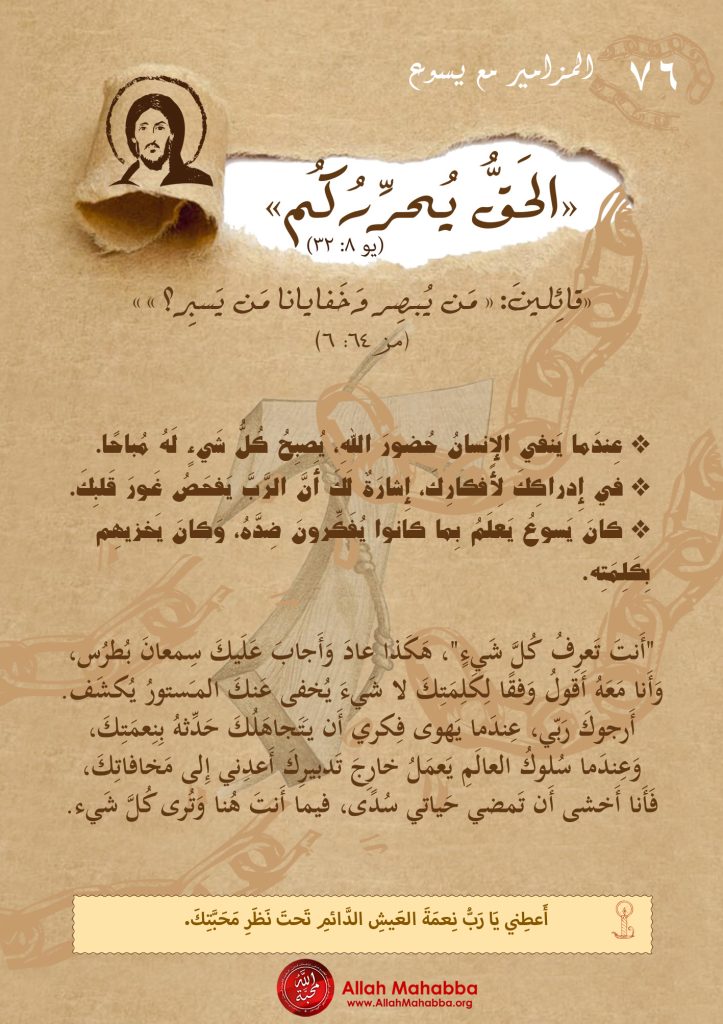 ٧٦ المزامير مع يسوع
«الحَقُّ يُحرِّرُكُم»
(يو ٨: ٣٢)
«قائِلينَ: « مَن يُبصِر وَخَفايانا مَن يَسبِر؟ » »
(مز ٦٤: ٦)
❖ عِندَما يَنفي الإِنسانُ حُضورَ الله، يُصبِحُ كُلُّ شَيءٍ لَهُ مُباحًا.
❖ في إِدراكِكَ لِأَفكارِك، إِشارَةٌ لَكَ أَنَّ الرَّبَّ يَفحَصُ غَورَ قَلبِكَ.
❖ كانَ يَسوعُ يَعلَمُ بِما كانوا يُفَكِّرونَ ضِدَّهُ، وَكانَ يَخزيهِم
بِكَلِمَتِه.
"أَنتَ تَعرِفُ كُلَّ شَيءٍ"، هَكَذا عادَ وَأَجابَ عَلَيكَ سِمعانَ بُطرُس،
وَأَنا مَعَهُ أَقولُ وَفقًا لِكَلِمَتِكَ لا شَيءَ يُخفى عَنكَ المَستورُ يُكشَف.
أَرجوكَ رَبّي، عِندَما يَهوى فِكري أَن يَتَجاهَلُكَ حَدِّثهُ بِنِعمَتِكَ،
وَعِندَما سُلوكُ العالَمِ يَعمَلُ خارِجَ تَدبيرِكَ أَعدِني إِلى مَخافاتِكَ،
فَأَنا أَخشى أَن تَمضي حَياتي سُدًى، فيما أَنتَ هُنا وَتُرى كُلَّ شَيء.
أَعطِني يَا رَبُّ نِعمَةَ العَيشِ الدَّائمِ تَحتَ نَظَرِ مَحَبَّتِكَ.
الله محبّة
Allah Mahabba
www.AllahMahabba.org